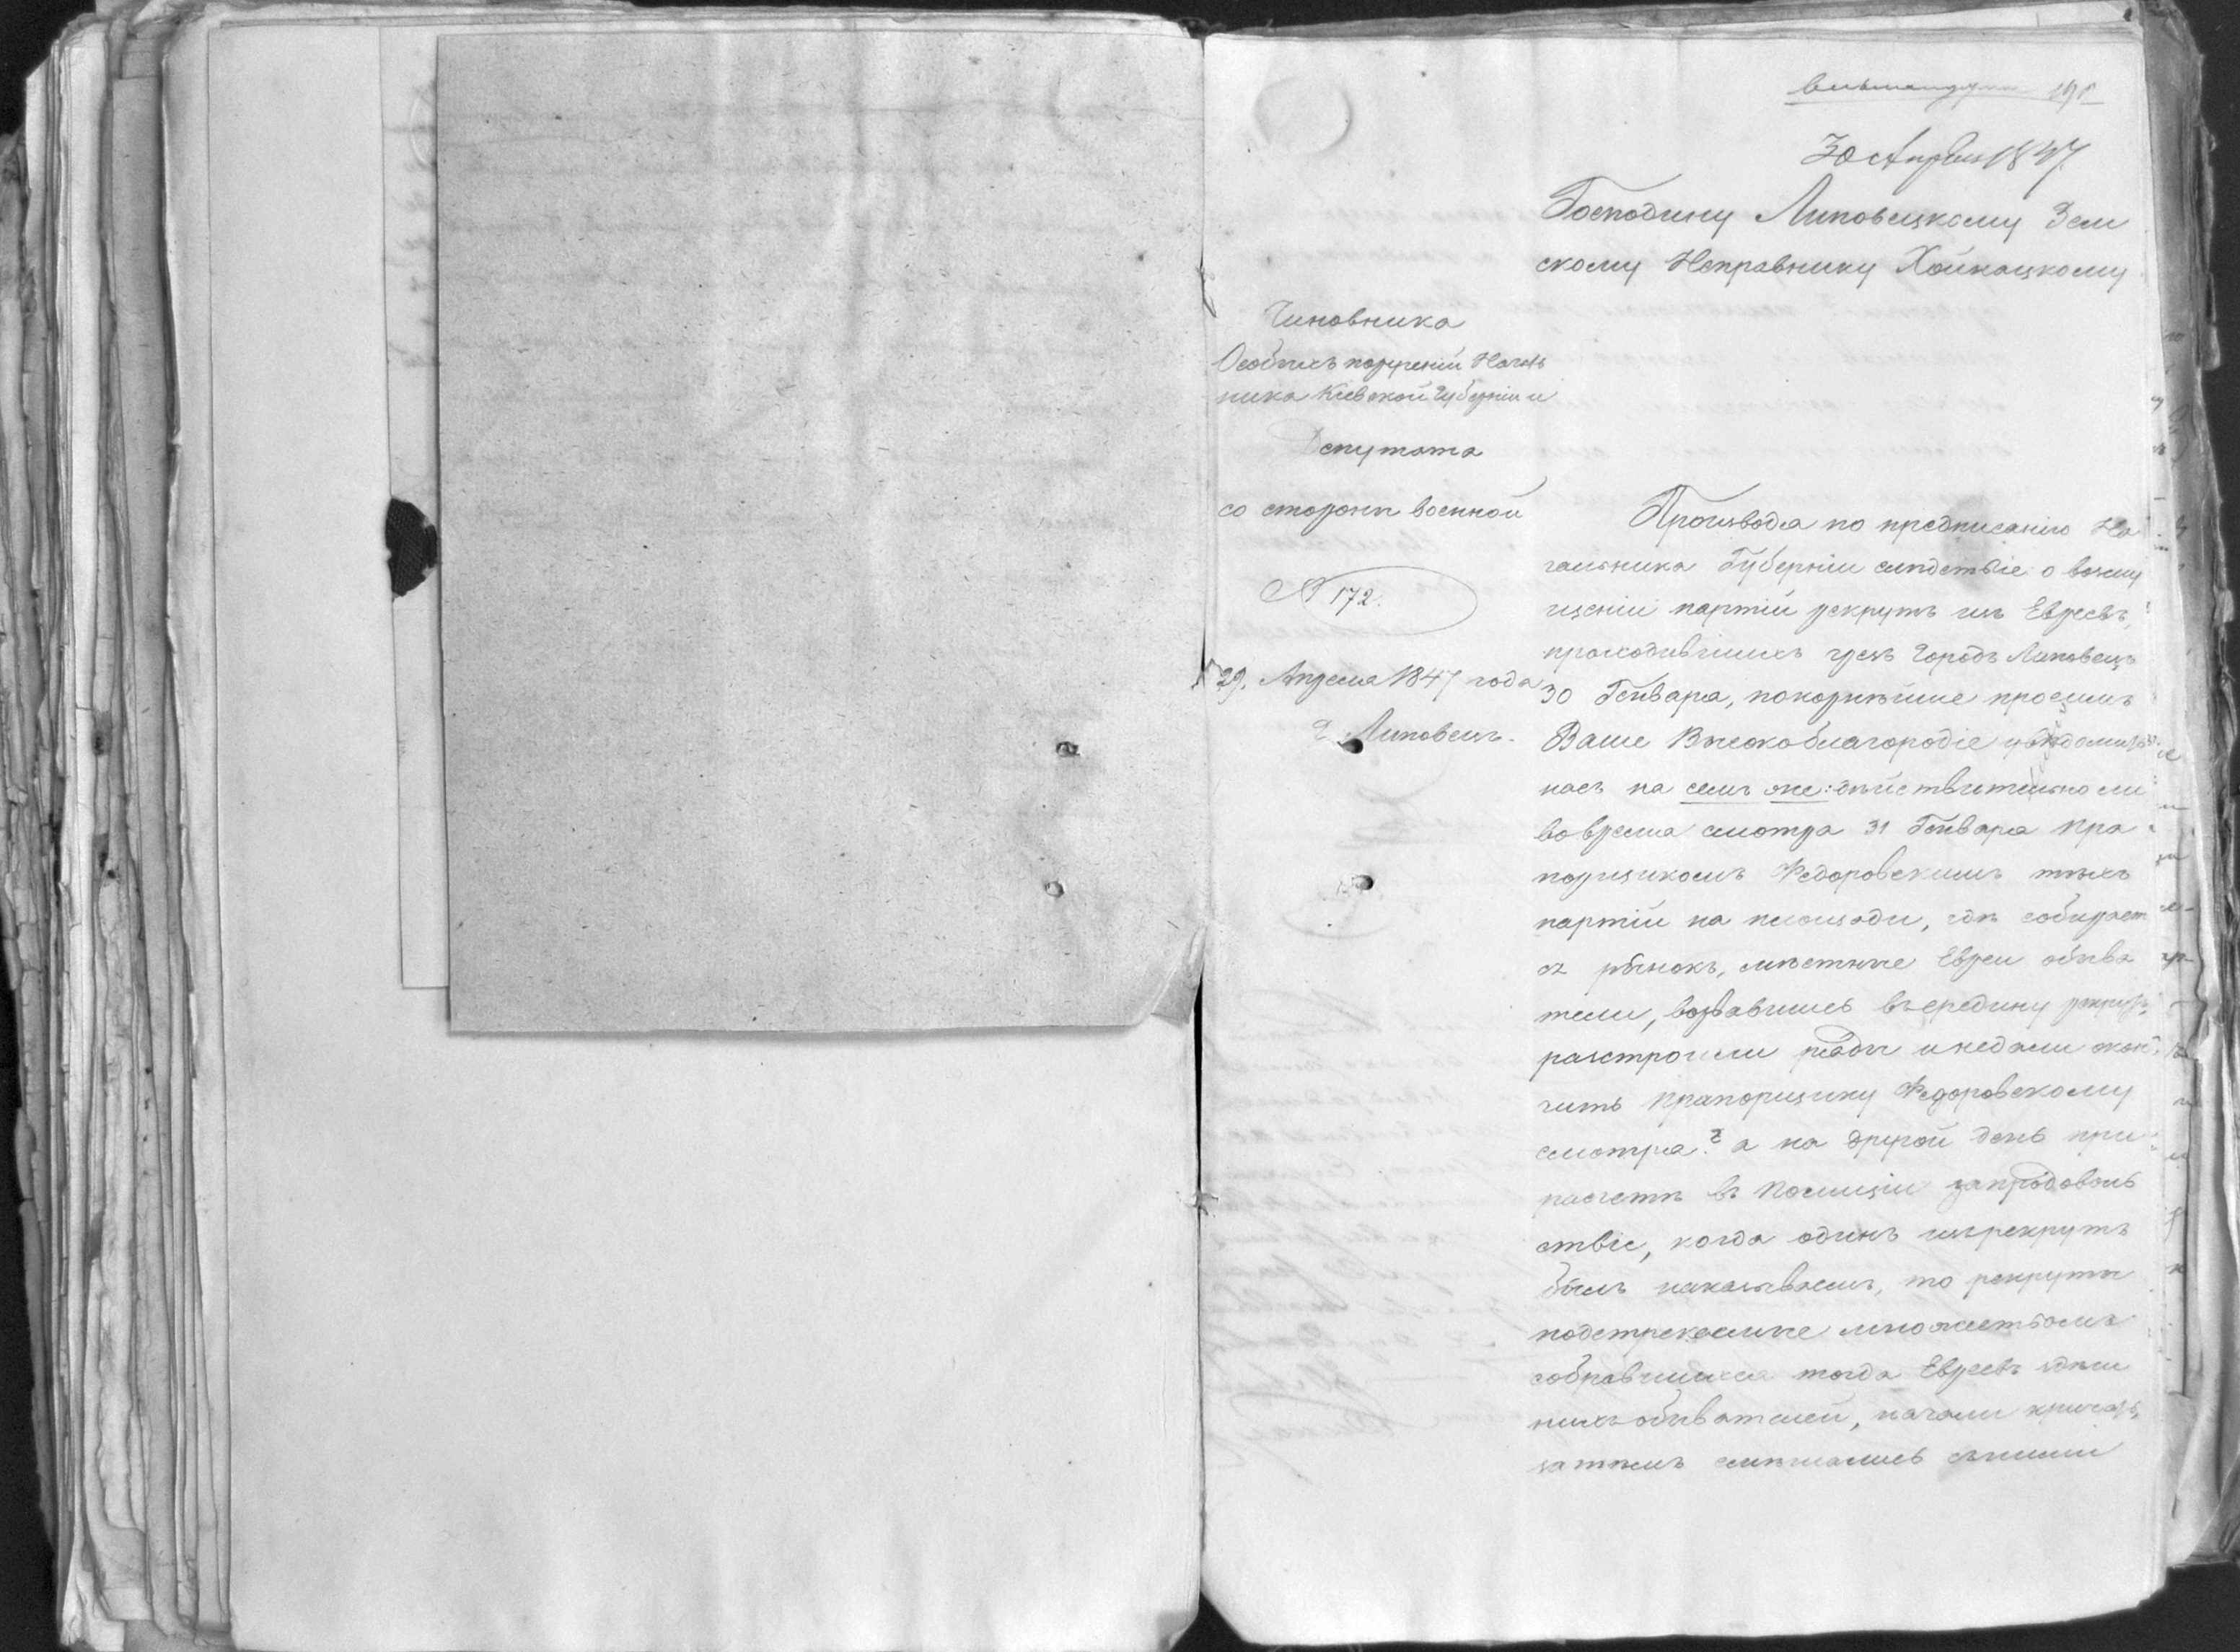 191
30 Апреля 1847
Господину Липовецкому Зем
скому Исправнику Хойнацкому
Чиновника
Особыхъ порученій Началь
ника Кіевской Губерніи и
Депутата
со стороны военной
№ 172.
29. Апреля 1847 года
г. Липовецъ.
Производя по предписанію На
чальника Губерніи следствіе о возму
щеніи партіи рекрутъ изъ Евреевъ,
проходившихъ чрезъ городъ Липовецъ
30 Генваря, покорнѣйше просимъ
Ваше Высокоблагородіе увѣдомить
насъ на семъ же: дѣйствительно ли
во время смотра 31 Генваря Пра
порщикомъ Федоровскимъ тѣхъ
партіи на площади, гдѣ собирает
ся рынокъ, мѣстные Евреи обыва
тели, ворвавшись въ средину рекрутъ,
разстроили ряды и недали окон
чить Прапорщику Федоровскому
смотра? а на другой день при
расчетѣ въ Полиціи за продоволь
ствіе, когда одинъ изъ рекрутъ
былъ наказываемъ, то рекруты
подстрекаемые множествомъ
собравшихся тогда Евреевъ здѣш
нихъ обывателей, начали кричать,
затѣмъ смѣшались съ ними